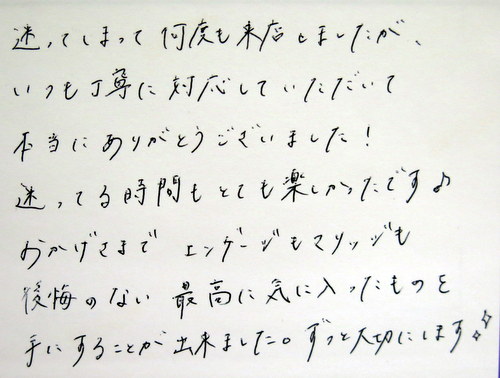 迷ってしまって何度も来店しましたが、
いつも丁寧に対応していただいて
本当にありがとうございました!
迷ってる時間もとても楽しかったです♪
おかげさまで エンゲージもマリッジも
後悔のない 最高に気に入ったものを
手にすることが出来ました。ずっと大切にします✧✧